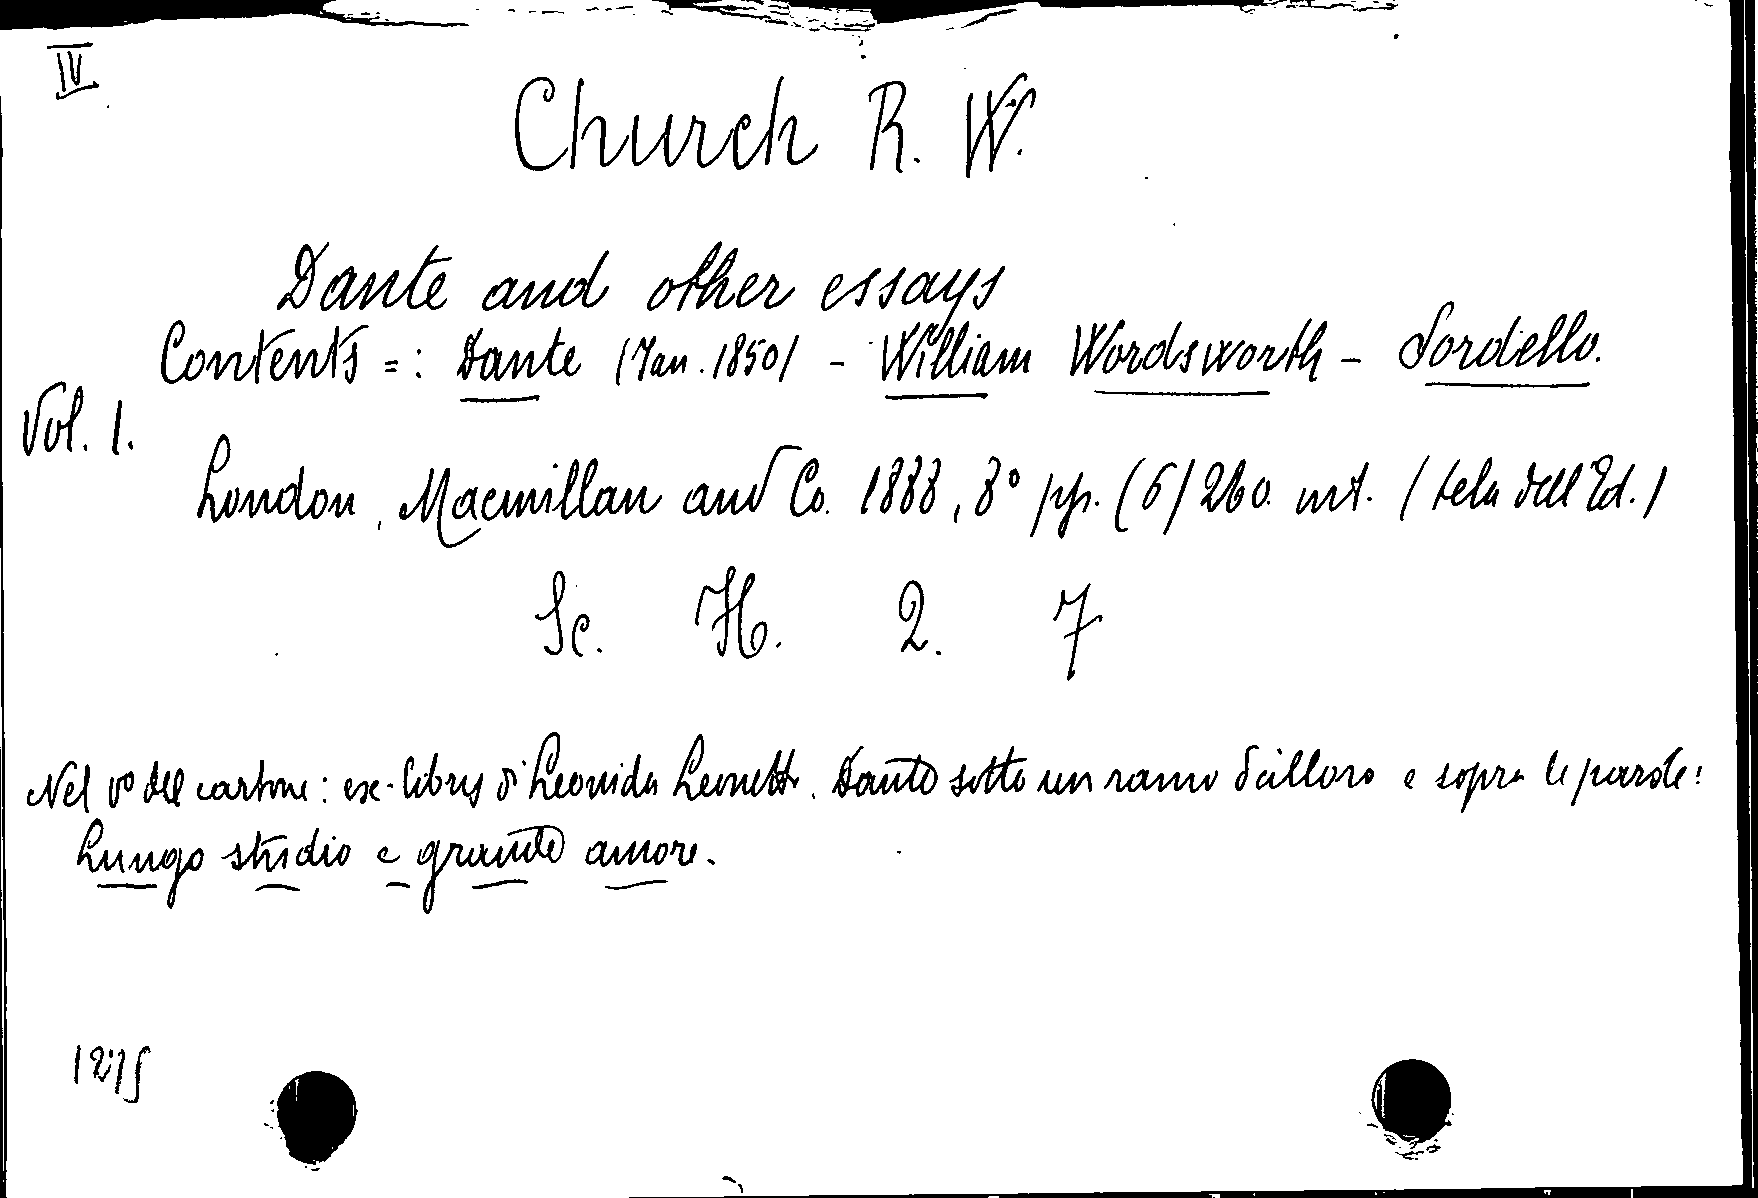 IV
Church R. W.
Dante and other essays
Contents =: Dante (Jan. 1850) - William Wordsworth - Sordello.
Vol. 1.
London, Macmillan and Co. 1888, 8° pp. (6) 260. int. (tela dell'Ed.)
Sc. H. 2. 7
Nel v° del cartone: ex-libris di Leonida Leonetti. Dante sotto un ramo d'alloro e sopra le parole:
Lungo studio e grande amore.